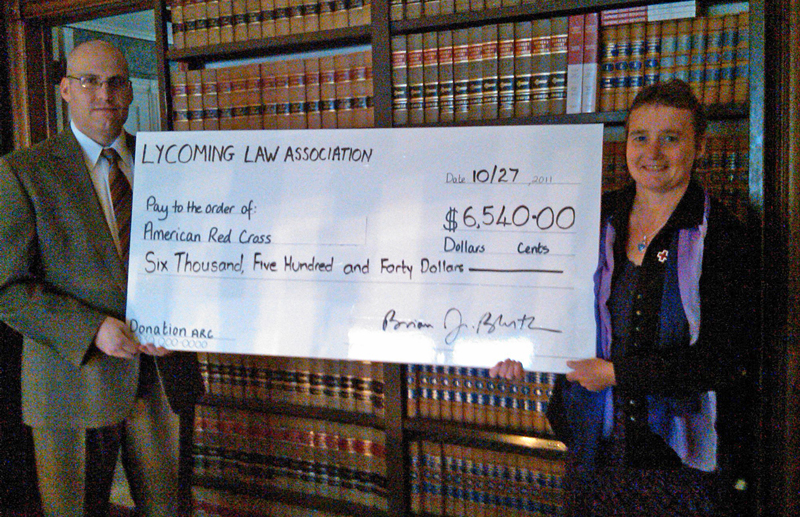 LYCOMING LAW ASSOCIATION
Date 10/27, 2011
Pay to the order of:
American Red Cross
$6,540.00
Dollars Cents
Six Thousand, Five Hundred and Forty Dollars
Brian J.
Donation ARC